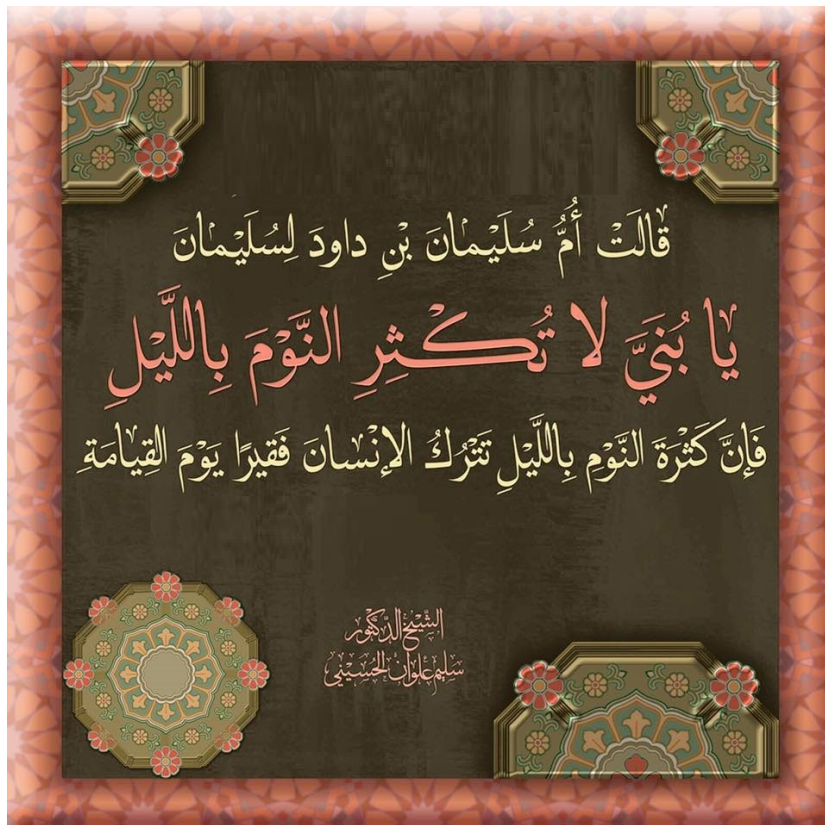 قَالَتْ أُمُّ سُلَيْمَانَ بْنِ دَاودَ لِسُلَيْمَانَ
يا بُنَيَّ لا تُكْثِرِ النَّوْمَ بِاللَّيْلِ
فَإنَّ كَثْرَةَ النَّوْمِ بِاللَّيْلِ تَتْرُكُ الإنْسَانَ فَقيرًا يَوْمَ القِيامَةِ
الشيخ الدكتور
سليم علوان الحسيني